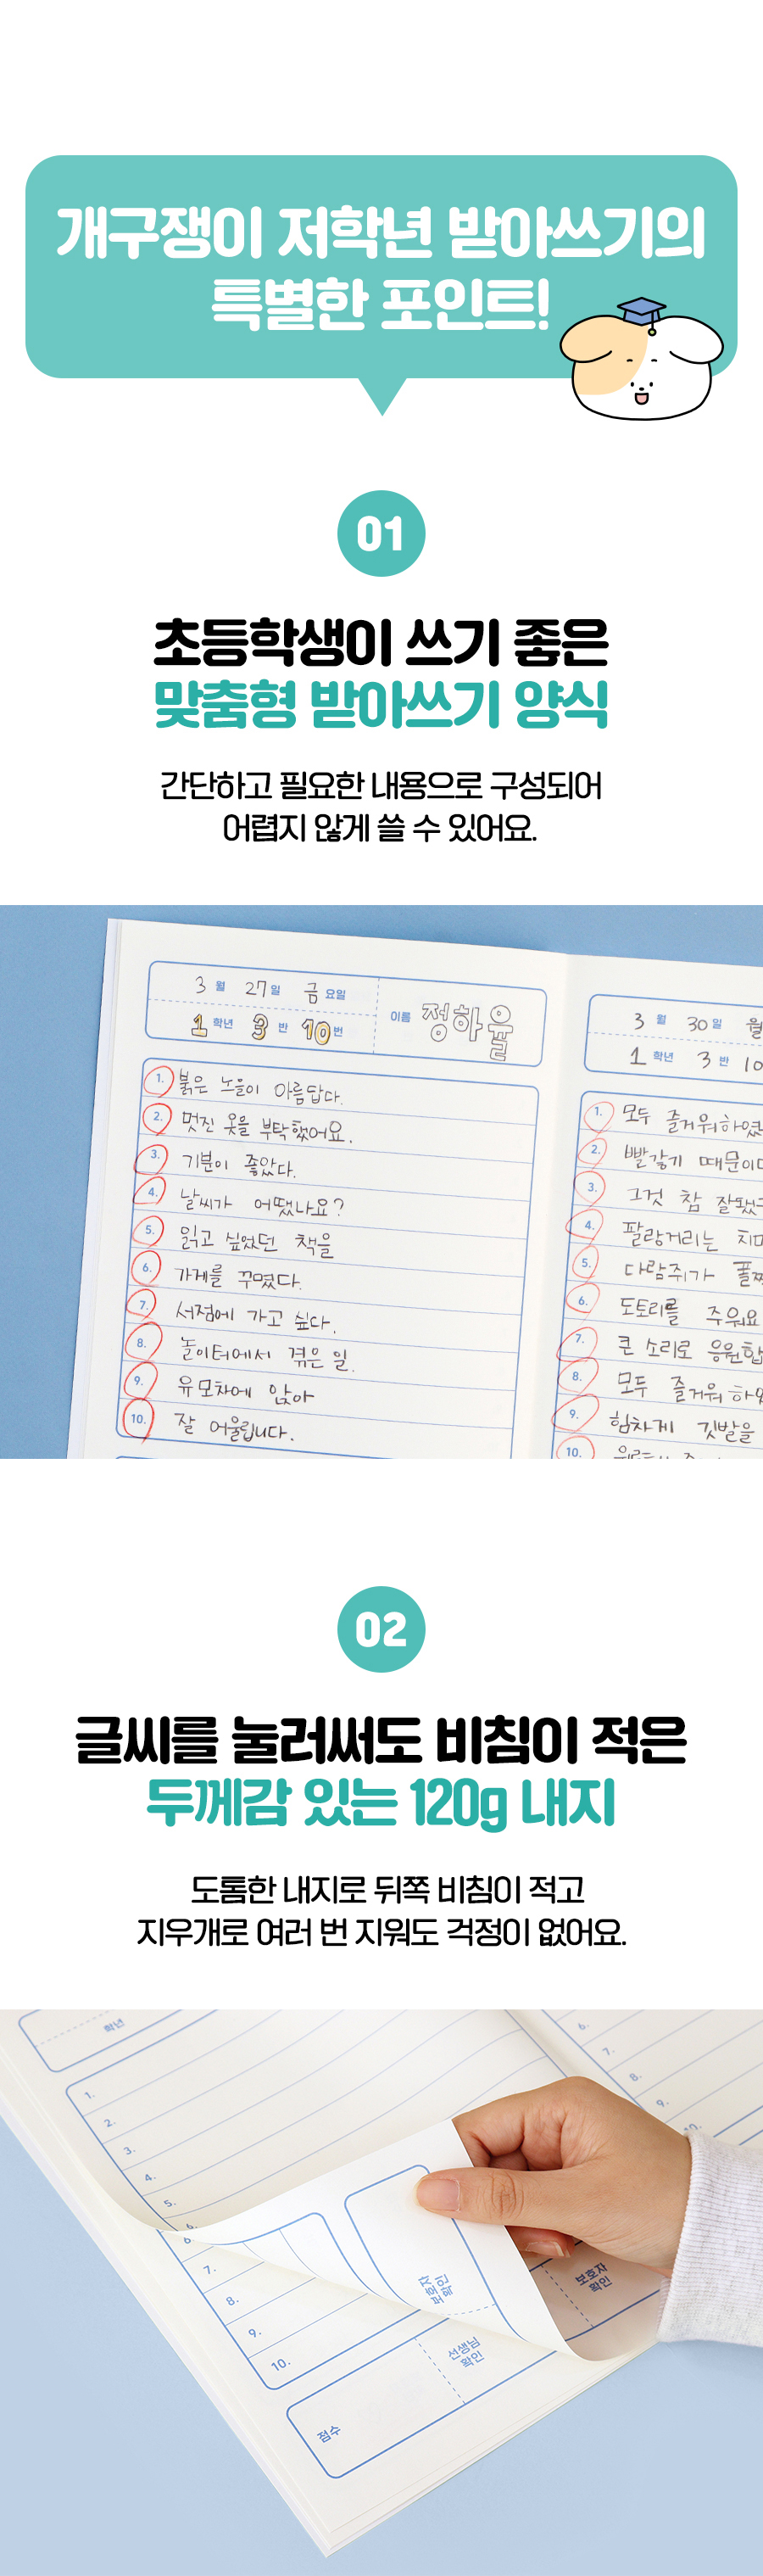 개구쟁이 저학년 받아쓰기의
특별한 포인트!
01
초등학생이 쓰기 좋은
맞춤형 받아쓰기 양식
간단하고 필요한 내용으로 구성되어
어렵지 않게 쓸 수 있어요.
3 월 27 일 금 요일
1 학년 3 반 10 번
이름 정하율
1. 붉은 노을이 아름답다.
2. 멋진 옷을 부탁했어요.
3. 기분이 좋았다.
4. 날씨가 어땠나요?
5. 읽고 싶었던 책을
6. 가게를 꾸몄다.
7. 서점에 가고 싶다.
8. 놀이터에서 겪은 일.
9. 유모차에 앉아
10. 잘 어울립니다.
3 월 30 일 월
1 학년 3 반 10
1. 모두 즐거워하였
2. 빨갛기 때문이
3. 그것 참 잘됐
4. 팔랑거리는 치마
5. 다람쥐가 폴짝
6. 도토리를 주워요
7. 큰 소리로 응원합
8. 모두 즐거워 하였
9. 힘차게 깃발을
10.
02
글씨를 눌러써도 비침이 적은
두께감 있는 120g 내지
도톰한 내지로 뒤쪽 비침이 적고
지우개로 여러 번 지워도 걱정이 없어요.
학년
1.
2.
3.
4.
5.
6.
6.
7.
8.
9.
10.
6.
7.
8.
9.
10.
보호자
확인
보호자
확인
선생님
확인
점수